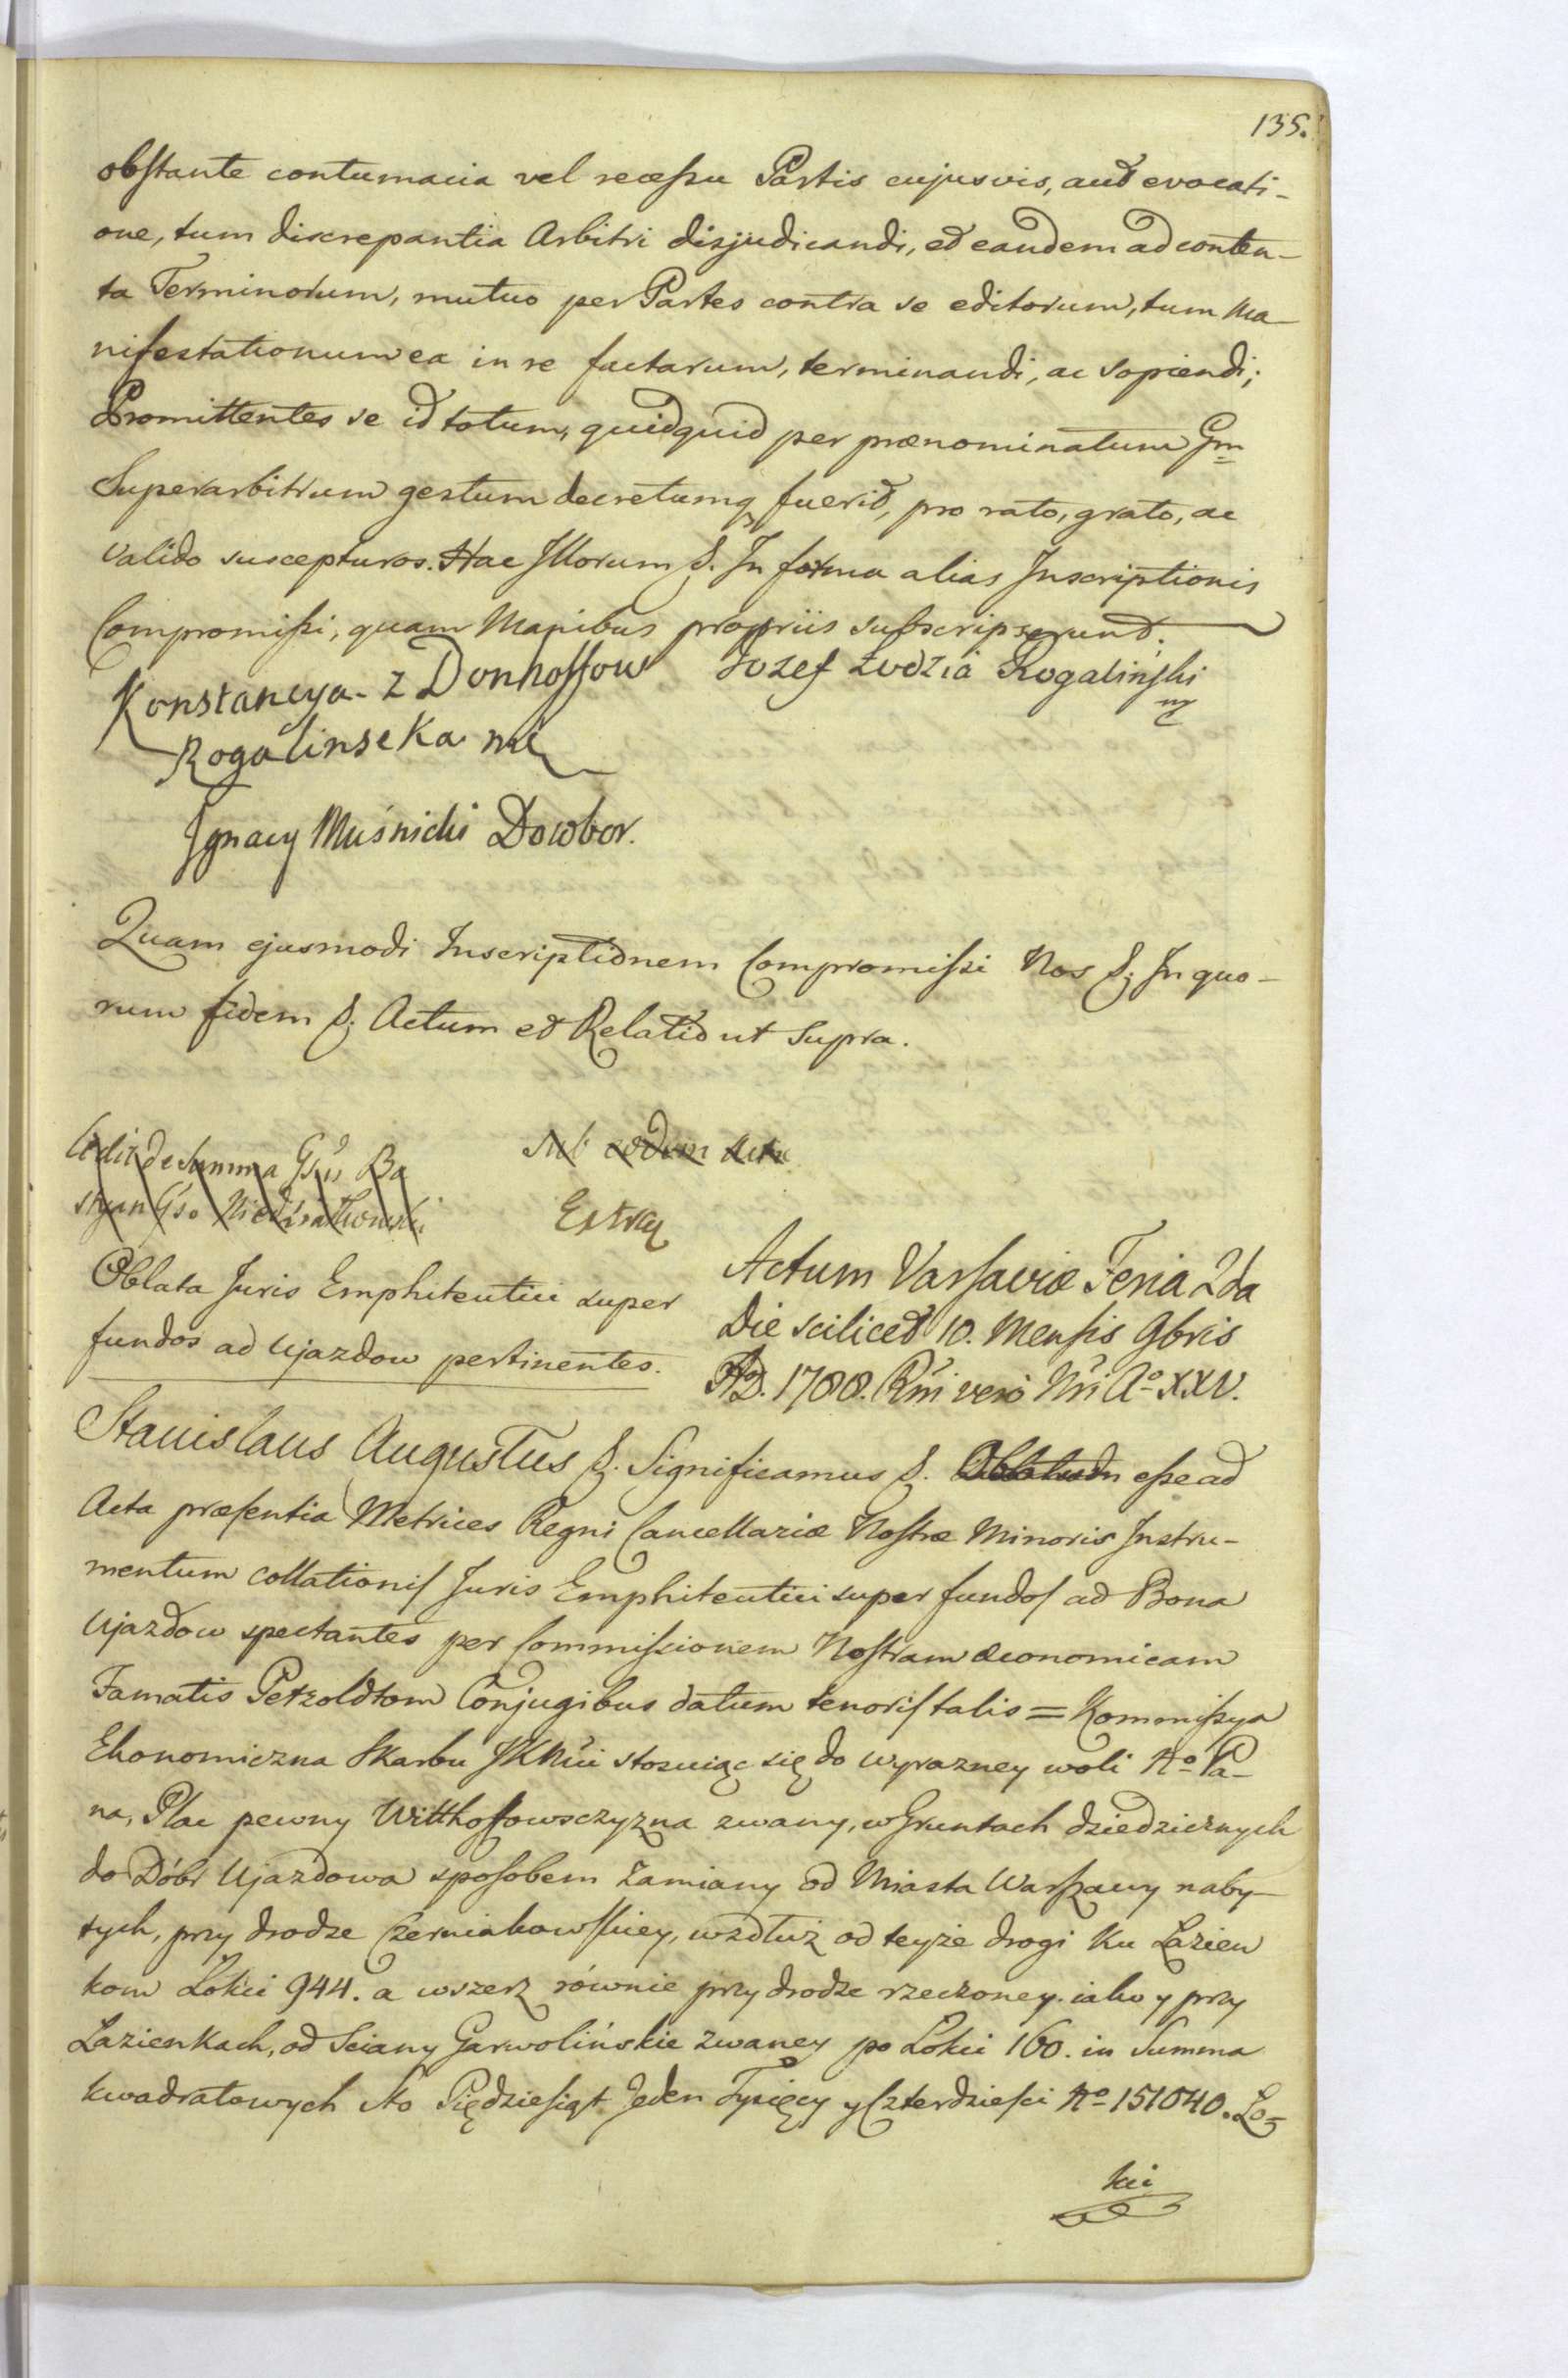 135.
obstante contumacia vel recessu Partis cujusvis, aut evocati-
one, tum discrepantia Arbitri disjudicandi, et eandem ad conten-
ta Terminorum, mutuo per Partes contra se editorum, tum Ma-
nifestationum ea in re factarum, terminandi, ac sopiendi;
Promittentes se id totum, quidquid per prænominatum Gm
Superarbitrum gestum decretumq fuerit, pro rato, grato, ac
valido suscepturos. Hac Illorum &. In forma alias Inscriptionis
Compromissi, quam Manibus propriis subscripserunt.
Konstancya z Donhoffow Jozef Łodzia Rogalinski
Rogalinseka mp
Ignacy Muśnicki Dowbor.
Quam ejusmodi Inscriptionem Compromissi Nos &. In quo-
rum fidem &. Actum et Relatio ut Supra.
sub eodem Actu
de Summa
Oblata Juris Emphiteutici super
fundos ad Ujazdow pertinentes.
Actum Varsaviæ Feria 2da
Die scilicet 10. Mensis 9bris
AD. 1788. Rni vero Nri Ao XXV.
Stanislaus Augustus &. Significamus &. Oblatum esse ad
Acta præsentia Metrices Regni Cancellariæ Nostræ Minoris Instru-
mentum collationis Juris Emphiteutici super fundos ad Bona
Ujazdow spectantes per Commissionem Nostram œconomicam
Famatis Petzoldtom Conjugibus datum tenoris talis = Kommissya
Ekonomiczna Skarbu JKMci stosuiąc się do wyrazney woli No Pa-
na, Plac pewny Witthoffowsczyzna zwany, w Gruntach dziedzicznych
do Dóbr Ujazdowa sposobem zamiany od Miasta Warszawy naby-
tych, przy drodze Czerniakowskiey, wzdłuż od teyże drogi ku Łazien
kom Łokci 944. a wszerz równie przy drodze rzeczoney iako y przy
Łazienkach, od Sciany Garwolińskie zwaney po Łokci 160. in Summa
kwadratowych sto Pięćdziesiąt Jeden Tysięcy y Czterdziesci No 151040. Ło-
kci